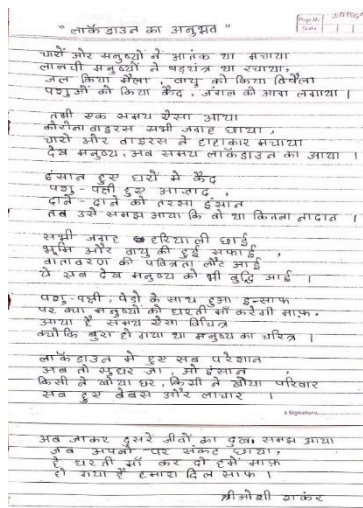 "लॉकडाउन का अनुभव"
Page No.
Date
चारों ओर मनुष्यों ने आतंक था मचाया
लालची मनुष्यों ने षड्यंत्र था रचाया,
जल किया मैला, वायु को किया विषैला
पशुओं को किया कैद, जंगल को आग लगाया।
तभी एक समय ऐसा आया
कोरोना वाइरस सभी जगह छाया,
चारों ओर वाइरस ने हाहाकार मचाया
देख मनुष्य, अब समय लॉकडाउन का आया।
इंसान हुए घरों में कैद
पशु-पक्षी हुए आज़ाद,
दाने-दाने को तरसा इंसान
तब उसे समझ आया कि वो था कितना नादान।
सभी जगह हरियाली छाई
भूमि और वायु की हुई सफाई,
वातावरण की पवित्रता लौट आई
ये सब देख मनुष्य को भी बुद्धि आई
पशु-पक्षी, पेड़ों के साथ हुआ इन्साफ
पर क्या मनुष्यों को धरती माँ करेगी माफ़.
आया है समय ऐसा विचित्र
क्योंकि बुरा हो गया था मनुष्य का चरित्र।
लॉकडाउन में हुए सब परेशान
अब तो सुधर जा, ओ इंसान,
किसी ने खोया घर, किसी ने खोया परिवार
सब हुए बेबस और लाचार।
Signature
अब जाकर दुसरे जीवों का दुख समझ आया
जब अपनों पर संकट छाया,
हे धरती माँ कर दो हमें माफ़
हो गया है हमारा दिल साफ।
श्रीओशी शंकर